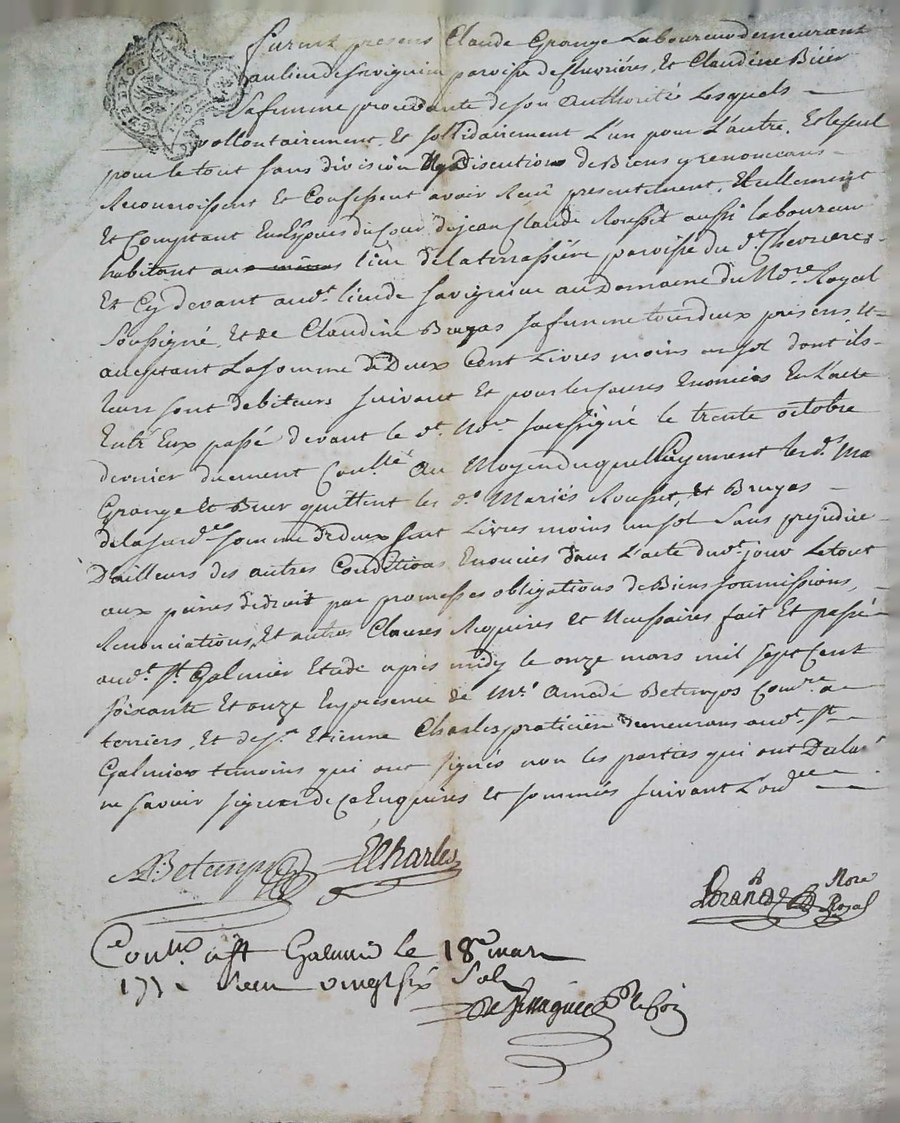 Furent presens Claude Grange Laboureur demeurant
au lieu de savignieu paroisse de chevriéres, Et Claudine Biéér
Sa femme procedante de son Authorité Lesquels
vollontairement Et sollidairement L'un pour L'autre, Et le seul
pour le tout sans division Ny Discution de Biens y renoncans
Reconnoissent Et Confessent avoir Receu presentement, Reellement
Et Comptant En Espéces du Cour de jean Claude Rousset aussi laboureur
habitant au lieu de la terrassiére paroisse du dt. Chevrieres
Et Cy devant audt. lieu de savignieu au Domaine du Nore. Royal
Soussigné, Et de Claudine Bruyas sa femme tous deux presens Et
acceptant La somme de Deux Cent Livres moins un sol dont ils
leurs sont debiteurs suivant Et pour les causes Enoncées En L'acte
Entr'Eux passé devant le dt. Nore soussigné le trente octobre
dernier duement Conllé Au Moyen duquel Payement les ds. Ma
Grange Et Biéer quittent les ds. Mariés Rousset, Et Bruyas
de la susde somme de deux Cent Livres moins un sol Sans prejudice
D'ailleurs des autres Conditions Enoncées dans L'acte dudt. jour Le tout
aux peines de droit par promesses obligations de Biens soumissions,
Renonciations, Et autres Clauses Requises Et Necessaires fait Et passé
audt. St. Galmier Etude aprés midy le onze mars mil sept Cent
soixante Et onze En presence de Mre. Amedé Betemps Comre. a
terriers, Et de sr. Etienne Charles praticien Demeurans audt. St.
Galmier temoins qui ont signés non les parties qui ont Declaré
ne savoir signer de ce Enquises Et sommées suivant L'ordce
ABetemps ECharles
Nore
Royal
Conllé. a St Galmier le 18e mars
1771 Receu vingt six Sols